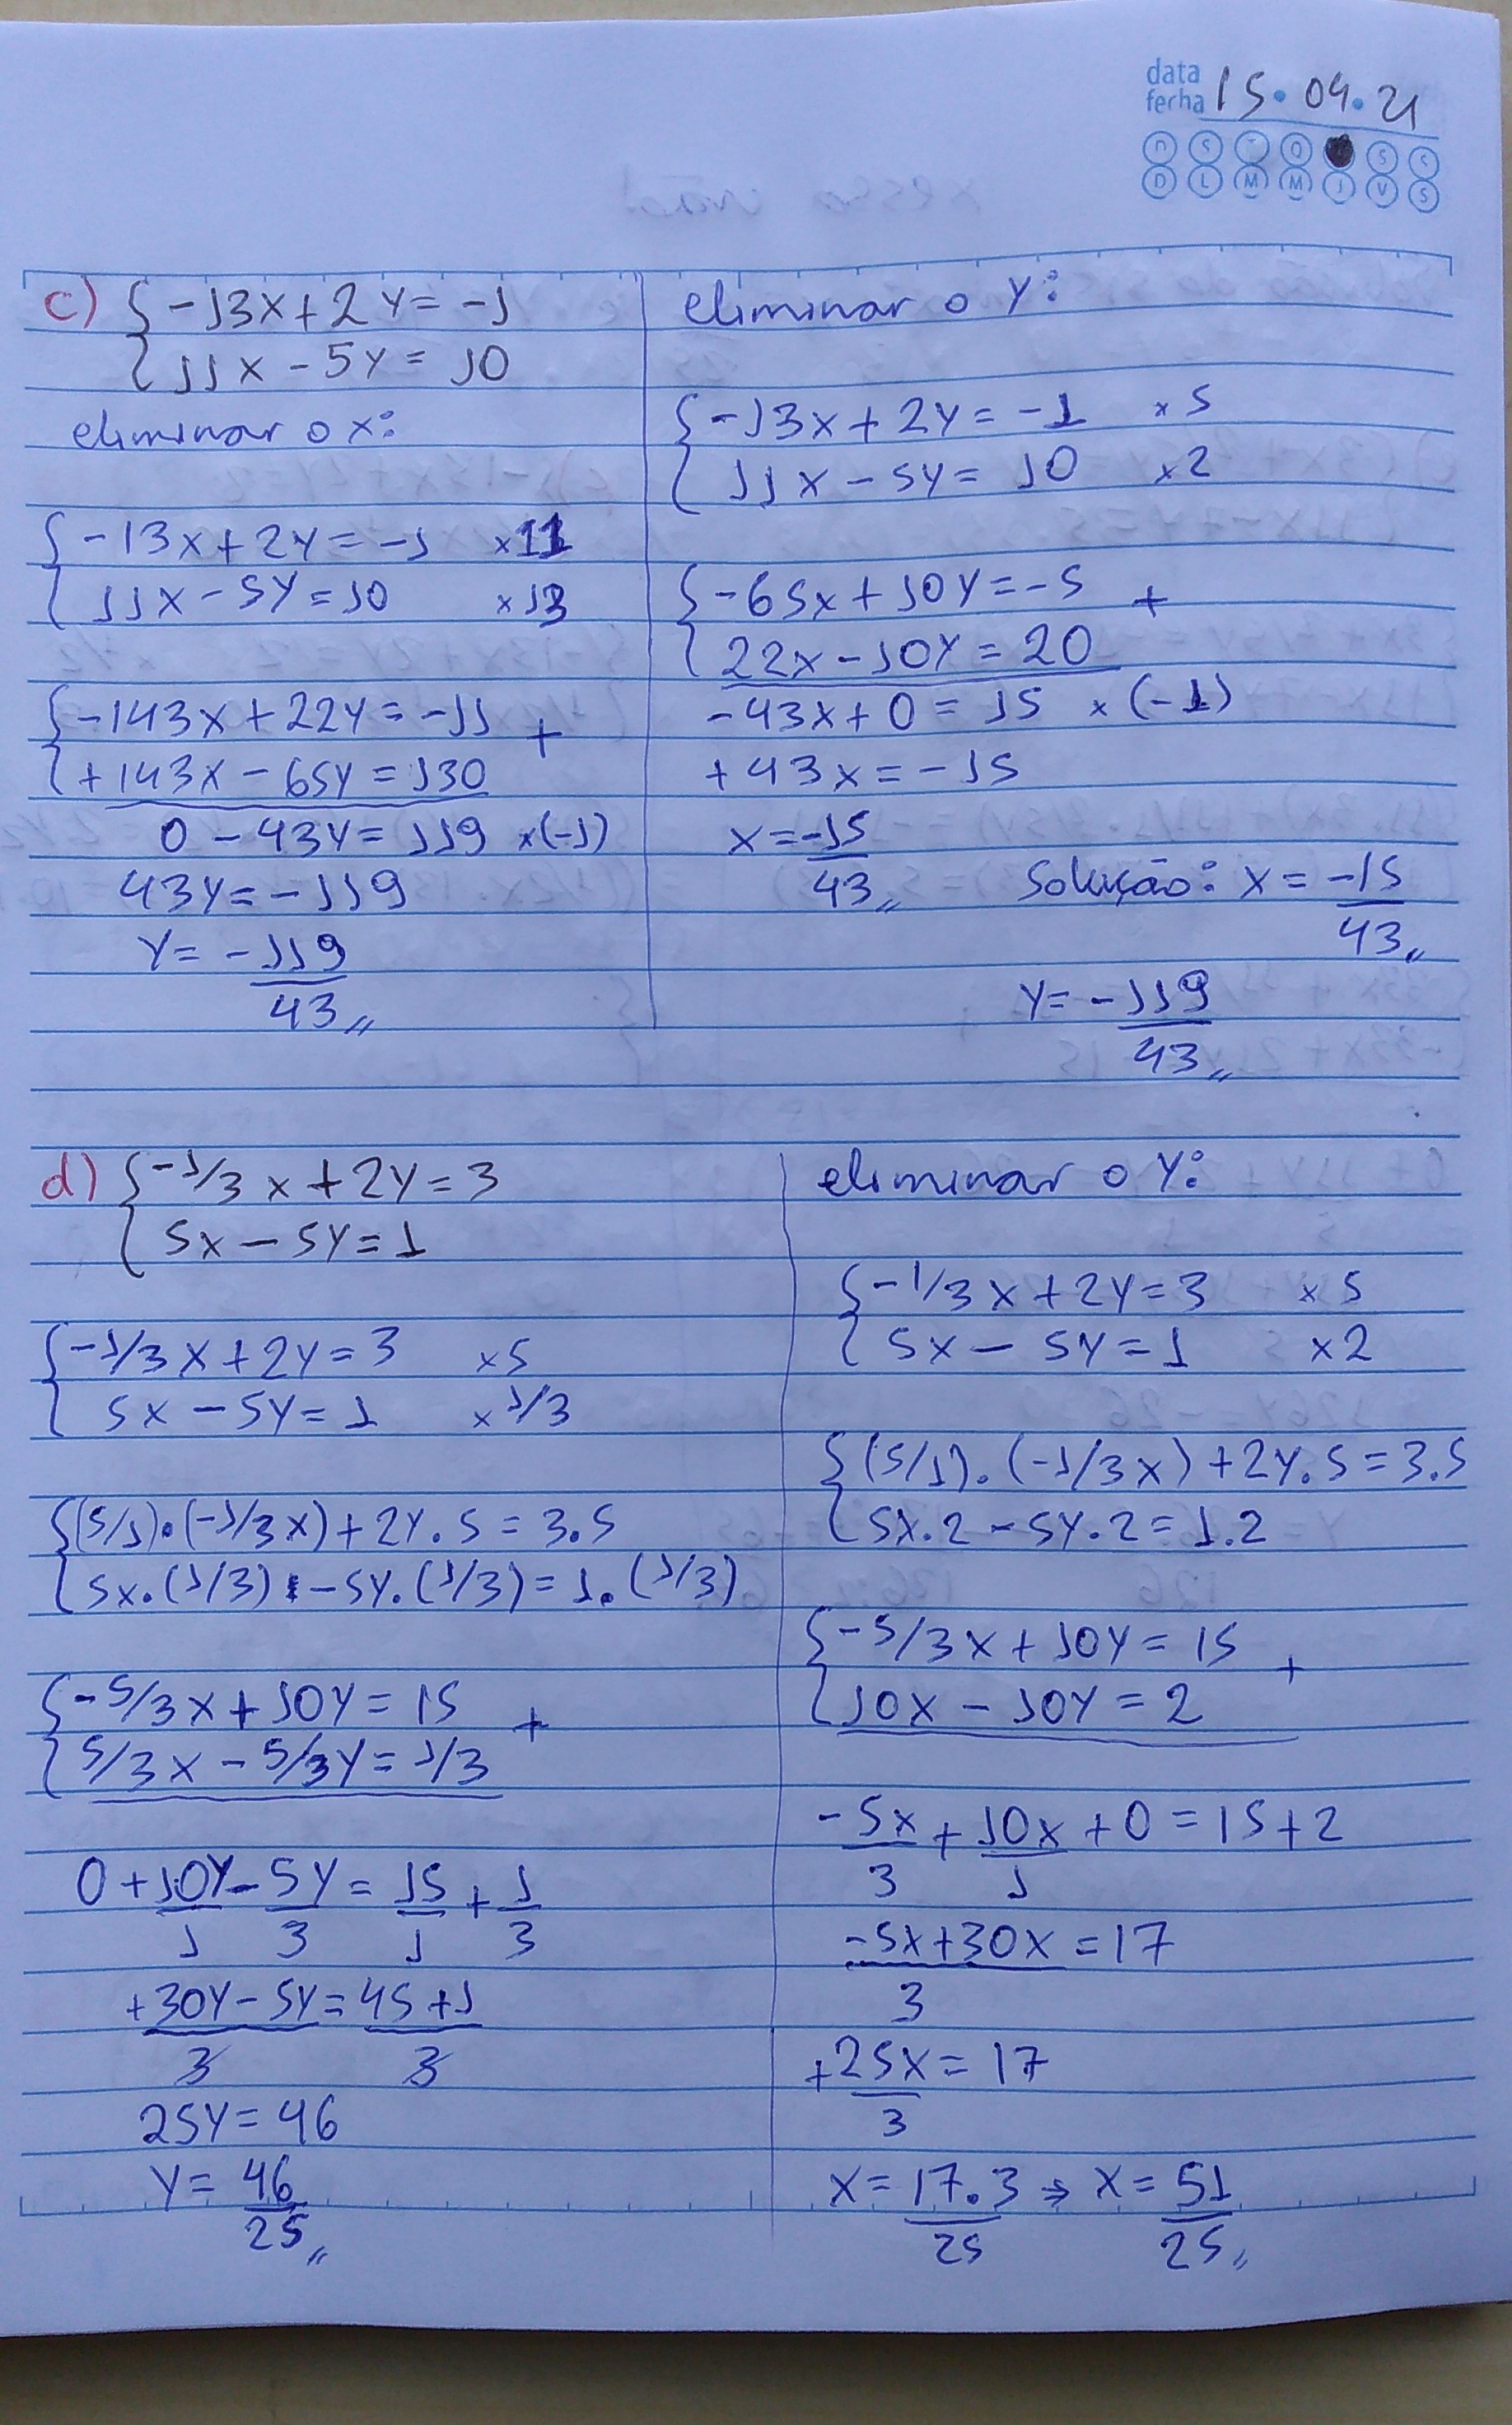 data
fecha 15.04.21
D S T Q S S
D L M M J V S
c) { -13x + 2y = -1
{ 11x - 5y = 10
eliminar o x:
{ -13x + 2y = -1 x11
{ 11x - 5y = 10 x13
{ -143x + 22y = -11 +
{ +143x - 65y = 130
0 - 43y = 119 x(-1)
43y = -119
y = -119
43,,
eliminar o y:
{ -13x + 2y = -1 x5
{ 11x - 5y = 10 x2
{ -65x + 10y = -5 +
{ 22x - 10y = 20
-43x + 0 = 15 x (-1)
+43x = -15
x = -15
43,,
Solução: x = -15
43,,
y = -119
43,,
d) { -1/3 x + 2y = 3
{ 5x - 5y = 1
{ -1/3 x + 2y = 3 x5
{ 5x - 5y = 1 x1/3
{ (5/1).(-1/3x) + 2y.5 = 3.5
{ 5x.(1/3) - 5y.(1/3) = 1.(1/3)
{ -5/3x + 10y = 15 +
{ 5/3x - 5/3y = 1/3
0 + 10y - 5y = 15 + 1
1 3 1 3
+30y - 5y = 45 + 1
3 3
25y = 46
y = 46
25,,
eliminar o y:
{ -1/3 x + 2y = 3 x5
{ 5x - 5y = 1 x2
{ (5/1).(-1/3x) + 2y.5 = 3.5
{ 5x.2 - 5y.2 = 1.2
{ -5/3x + 10y = 15 +
{ 10x - 10y = 2
-5x + 10x + 0 = 15 + 2
3 1
-5x + 30x = 17
3
+25x = 17
3
x = 17.3 → x = 51
25 25,,